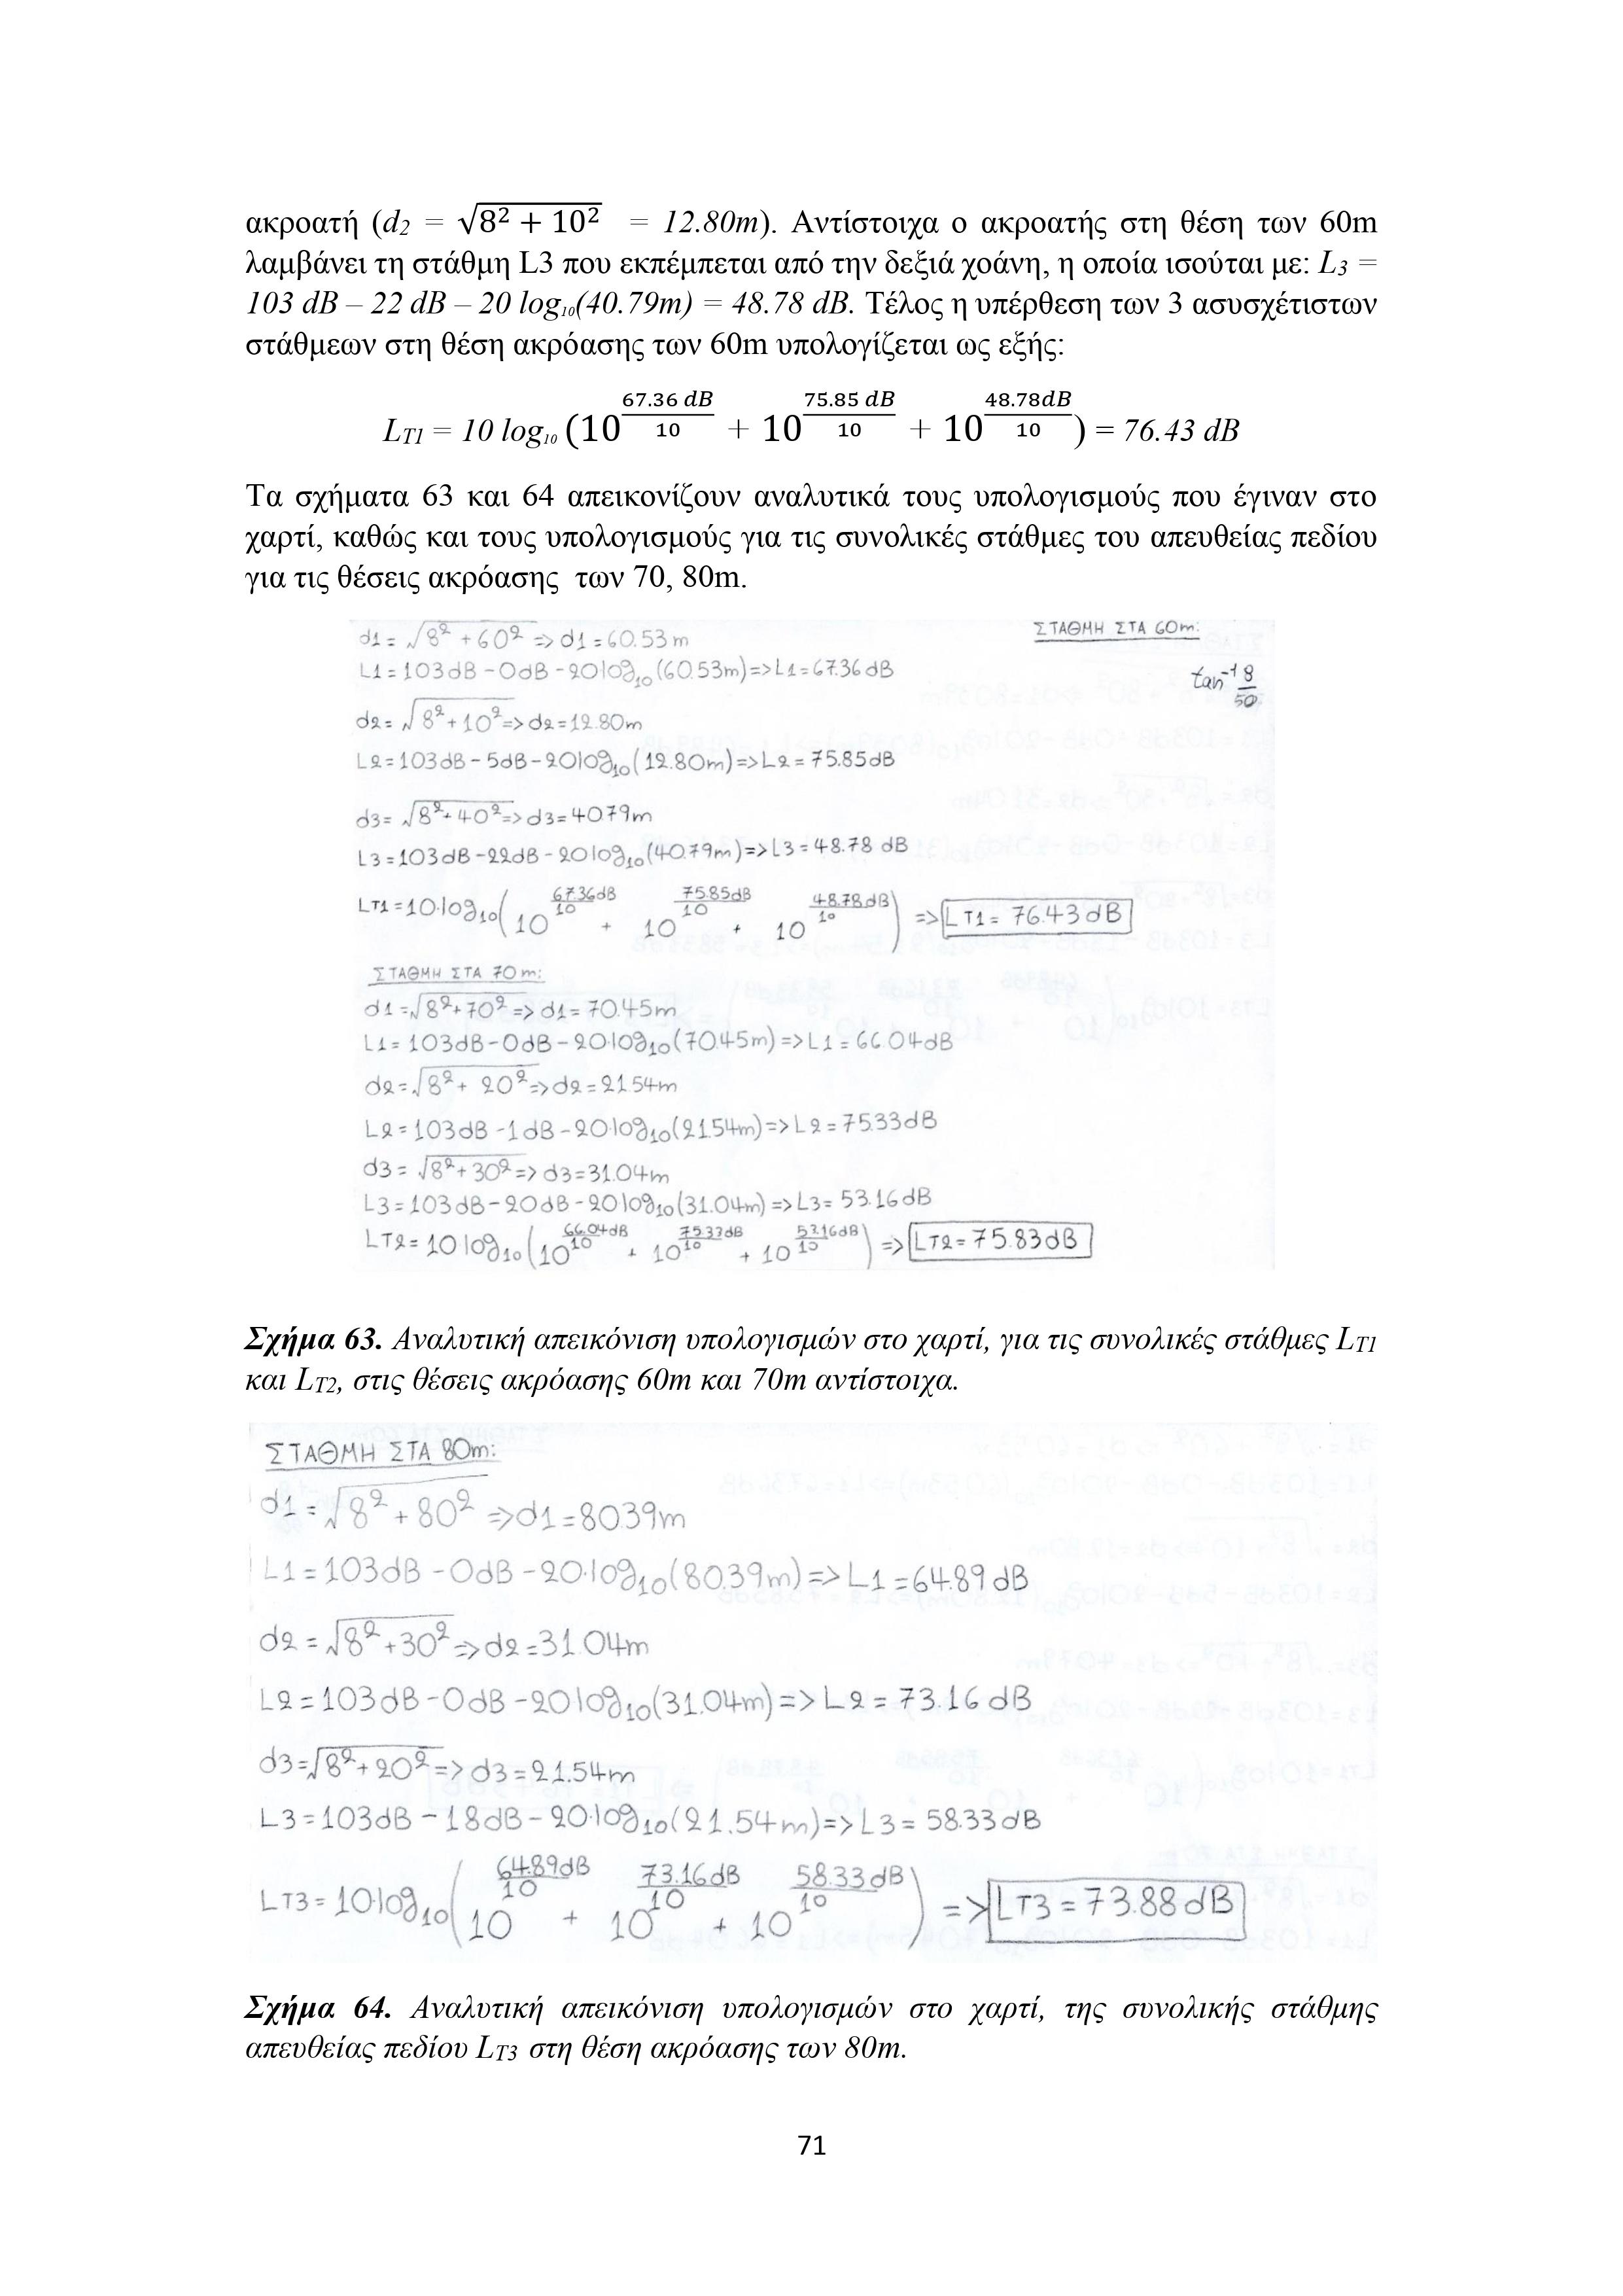 ακροατή (d2 = √8² + 10² = 12.80m). Αντίστοιχα ο ακροατής στη θέση των 60m
λαμβάνει τη στάθμη L3 που εκπέμπεται από την δεξιά χοάνη, η οποία ισούται με: L3 =
103 dB – 22 dB – 20 log10(40.79m) = 48.78 dB. Τέλος η υπέρθεση των 3 ασυσχέτιστων
στάθμεων στη θέση ακρόασης των 60m υπολογίζεται ως εξής:
LT1 = 10 log10 (10^(67.36 dB/10) + 10^(75.85 dB/10) + 10^(48.78dB/10)) = 76.43 dB
Τα σχήματα 63 και 64 απεικονίζουν αναλυτικά τους υπολογισμούς που έγιναν στο
χαρτί, καθώς και τους υπολογισμούς για τις συνολικές στάθμες του απευθείας πεδίου
για τις θέσεις ακρόασης των 70, 80m.
ΣΤΑΘΜΗ ΣΤΑ 60m:
d1 = √8² + 60² => d1 = 60.53 m
L1 = 103dB - 0dB - 20log10(60.53m) => L1 = 67.36 dB
tan⁻¹ 8/50
d2 = √8² + 10² => d2 = 12.80m
L2 = 103dB - 5dB - 20log10(12.80m) => L2 = 75.85dB
d3 = √8² + 40² => d3 = 40.79m
L3 = 103dB - 22dB - 20log10(40.79m) => L3 = 48.78 dB
LT1 = 10·log10(10^(67.36dB/10) + 10^(75.85dB/10) + 10^(48.78dB/10)) => LT1 = 76.43 dB
ΣΤΑΘΜΗ ΣΤΑ 70m:
d1 = √8² + 70² => d1 = 70.45m
L1 = 103dB - 0dB - 20·log10(70.45m) => L1 = 66.04dB
d2 = √8² + 20² => d2 = 21.54m
L2 = 103dB - 1dB - 20·log10(21.54m) => L2 = 75.33dB
d3 = √8² + 30² => d3 = 31.04m
L3 = 103dB - 20dB - 20log10(31.04m) => L3 = 53.16dB
LT2 = 10log10(10^(66.04dB/10) + 10^(75.33dB/10) + 10^(53.16dB/10)) => LT2 = 75.83dB
Σχήμα 63. Αναλυτική απεικόνιση υπολογισμών στο χαρτί, για τις συνολικές στάθμες LT1
και LT2, στις θέσεις ακρόασης 60m και 70m αντίστοιχα.
ΣΤΑΘΜΗ ΣΤΑ 80m:
d1 = √8² + 80² => d1 = 80.39m
L1 = 103dB - 0dB - 20·log10(80.39m) => L1 = 64.89 dB
d2 = √8² + 30² => d2 = 31.04m
L2 = 103dB - 0dB - 20log10(31.04m) => L2 = 73.16 dB
d3 = √8² + 20² => d3 = 21.54m
L3 = 103dB - 18dB - 20·log10(21.54m) => L3 = 58.33dB
LT3 = 10·log10(10^(64.89dB/10) + 10^(73.16dB/10) + 10^(58.33dB/10)) => LT3 = 73.88 dB
Σχήμα 64. Αναλυτική απεικόνιση υπολογισμών στο χαρτί, της συνολικής στάθμης
απευθείας πεδίου LT3 στη θέση ακρόασης των 80m.
71